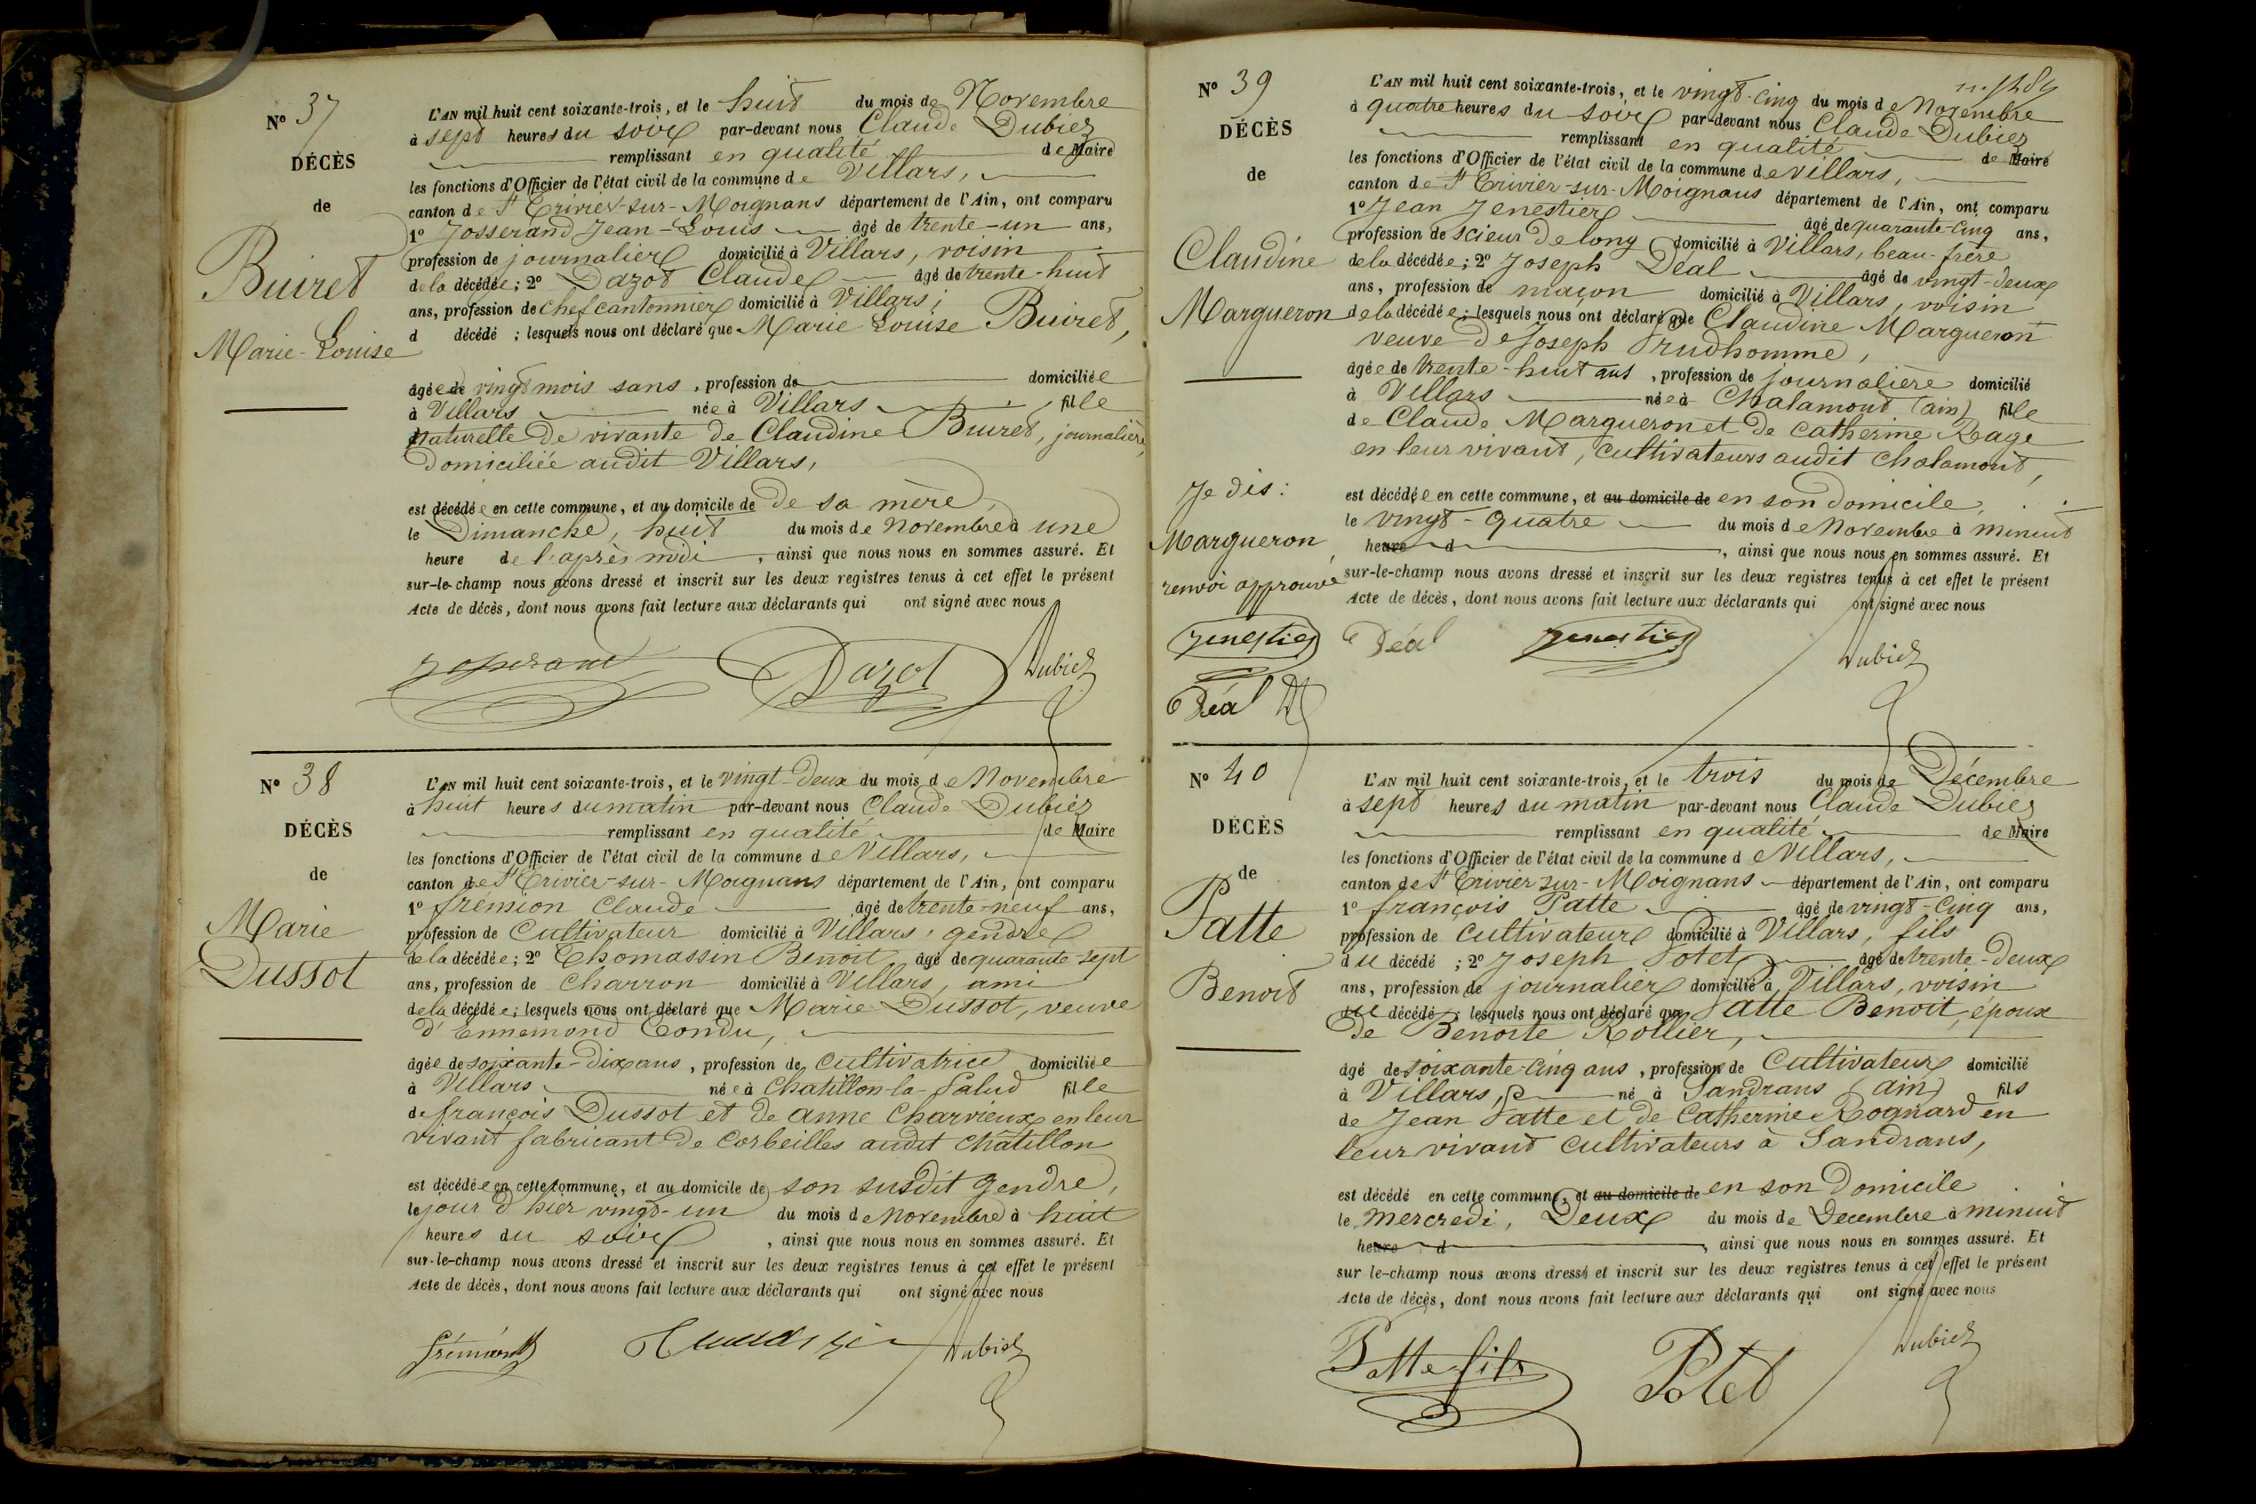 N° 37
DÉCÈS
de
Buiret
Marie-Louise
L'AN mil huit cent soixante-trois, et le huit du mois de Novembre
à sept heures du soir par-devant nous Claude Dubiez
remplissant en qualité de Maire
les fonctions d'Officier de l'état civil de la commune de Villars,
canton de St Trivier-sur-Moignans département de l'Ain, ont comparu
1° Josserand Jean-Louis âgé de trente-un ans,
profession de journalier domicilié à Villars, voisin
de la décédée; 2° Dazot Claude âgé de trente-huit
ans, profession de chef cantonnier domicilié à Villars;
d décédé ; lesquels nous ont déclaré que Marie Louise Buiret,
âgée de vingt mois sans, profession de domiciliée
à Villars née à Villars, fille
naturelle de vivante de Claudine Buiret, journalière,
domiciliée audit Villars,
est décédée en cette commune, et au domicile de de sa mère,
le Dimanche, huit du mois de Novembre à une
heure de l'après midi, ainsi que nous nous en sommes assuré. Et
sur-le-champ nous avons dressé et inscrit sur les deux registres tenus à cet effet le présent
Acte de décès, dont nous avons fait lecture aux déclarants qui ont signé avec nous
Josserand Dazot Dubiez
N° 38
DÉCÈS
de
Marie
Dussot
L'AN mil huit cent soixante-trois, et le vingt-deux du mois de Novembre
à huit heures du matin par-devant nous Claude Dubiez
remplissant en qualité de Maire
les fonctions d'Officier de l'état civil de la commune de Villars,
canton de St Trivier-sur-Moignans département de l'Ain, ont comparu
1° frémion Claude âgé de trente-neuf ans,
profession de Cultivateur domicilié à Villars, gendre
de la décédée; 2° Thomassin Benoit, âgé de quarante-sept
ans, profession de Charron domicilié à Villars, ami
de la décédée; lesquels nous ont déclaré que Marie Dussot, veuve
d'Ennemond Condu,
âgée de soixante-dix ans, profession de cultivatrice domiciliée
à Villars née à Chatillon-la-Palud fille
de françois Dussot et de anne Charvieux en leur
vivant fabricant de Corbeilles audit Châtillon
est décédée en cette commune, et au domicile de son susdit gendre,
le jour d'hier vingt-un du mois de Novembre à huit
heures du soir, ainsi que nous nous en sommes assuré. Et
sur-le-champ nous avons dressé et inscrit sur les deux registres tenus à cet effet le présent
Acte de décès, dont nous avons fait lecture aux déclarants qui ont signé avec nous
frémion Dubiez
N° 39
DÉCÈS
de
Claudine
Margueron
Je dis :
Margueron,
renvoi approuvé
Jenestier
Déal
L'AN mil huit cent soixante-trois, et le vingt-cinq du mois de Novembre
à quatre heures du soir par-devant nous Claude Dubiez
remplissant en qualité de Maire
les fonctions d'Officier de l'état civil de la commune de Villars,
canton de St Trivier-sur-Moignans département de l'Ain, ont comparu
1° Jean Jenestier âgé de quarante-cinq ans,
profession de scieur de long domicilié à Villars, beau-frère
de la décédée; 2° Joseph Déal âgé de vingt-deux
ans, profession de maçon domicilié à Villars, voisin
de la décédée; lesquels nous ont déclaré que Claudine Margueron
veuve de Joseph Prudhomme,
âgée de trente-huit ans, profession de journalière domicilié
à Villars née à Chalamont (ain) fille
de Claude Margueron et de Catherine Rage
en leur vivant, cultivateurs audit Chalamont,
est décédée en cette commune, et au domicile de en son domicile,
le vingt-quatre du mois de Novembre à minuit
heure d, ainsi que nous nous en sommes assuré. Et
sur-le-champ nous avons dressé et inscrit sur les deux registres tenus à cet effet le présent
Acte de décès, dont nous avons fait lecture aux déclarants qui ont signé avec nous
Déal Jenestier Dubiez
N° 40
DÉCÈS
de
Patte
Benoit
L'AN mil huit cent soixante-trois, et le trois du mois de Décembre
à sept heures du matin par-devant nous Claude Dubiez
remplissant en qualité de Maire
les fonctions d'Officier de l'état civil de la commune de Villars,
canton de St Trivier-sur-Moignans département de l'Ain, ont comparu
1° françois Patte âgé de vingt-cinq ans,
profession de cultivateur domicilié à Villars, fils
du décédé ; 2° Joseph Potet âgé de trente-deux
ans, profession de journalier domicilié à Villars, voisin
du décédé ; lesquels nous ont déclaré que Patte Benoit, époux
de Benoite Rollier,
âgé de soixante-cinq ans, profession de Cultivateur domicilié
à Villars, né à Sandrans (ain) fils
de Jean Patte et de Catherine Rognard en
leur vivant cultivateurs à Sandrans,
est décédé en cette commune, et au domicile de en son Domicile
le mercredi, Deux du mois de Décembre à minuit
heure d, ainsi que nous nous en sommes assuré. Et
sur le-champ nous avons dressé et inscrit sur les deux registres tenus à cet effet le présent
Acte de décès, dont nous avons fait lecture aux déclarants qui ont signé avec nous
Patte fils Potet Dubiez